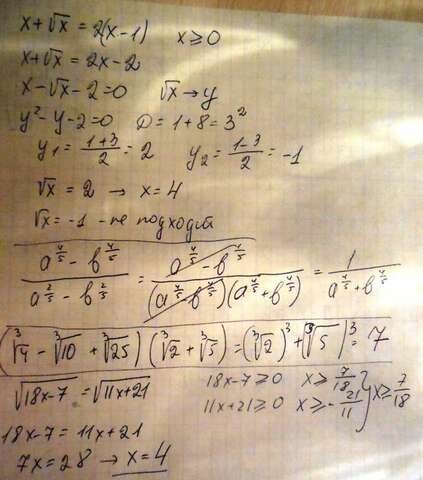 x+√x = 2(x-1) x≥0
x+√x = 2x-2
x-√x-2=0 √x→y
y²-y-2=0 D=1+8=3²
y₁=(1+3)/2=2 y₂=(1-3)/2=-1
√x=2 → x=4
√x=-1 - не подходит
(a^(4/5) - b^(4/5))/(a^(2/5) - b^(2/5)) = (a^(4/5) - b^(4/5))/((a^(4/5) - b^(4/5))(a^(4/5) + b^(4/5))) = 1/(a^(4/5) + b^(4/5))
(∛4 - ∛10 + ∛25)(∛2 + ∛5) = (∛2)³ + (∛5)³ = 7
√(18x-7) = √(11x+21) 18x-7≥0 x≥7/18 } x≥7/18
11x+21≥0 x≥-21/11
18x-7=11x+21
7x=28 → x=4